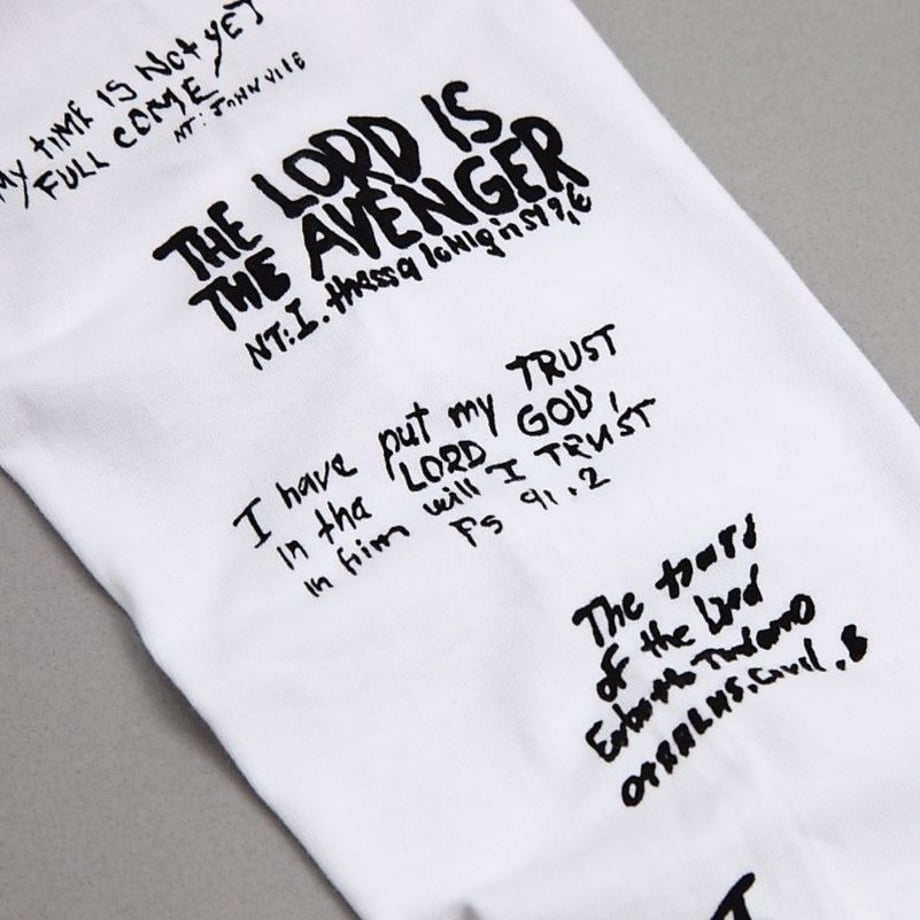 MY TIME IS Not YET
FULL COME
NT: JOHN VII 6
THE LORD IS
THE AVENGER
NT: I. thessa
I have put my TRUST
in the LORD GOD,
in him will I TRUST
PS 91.2
The
of the Lord